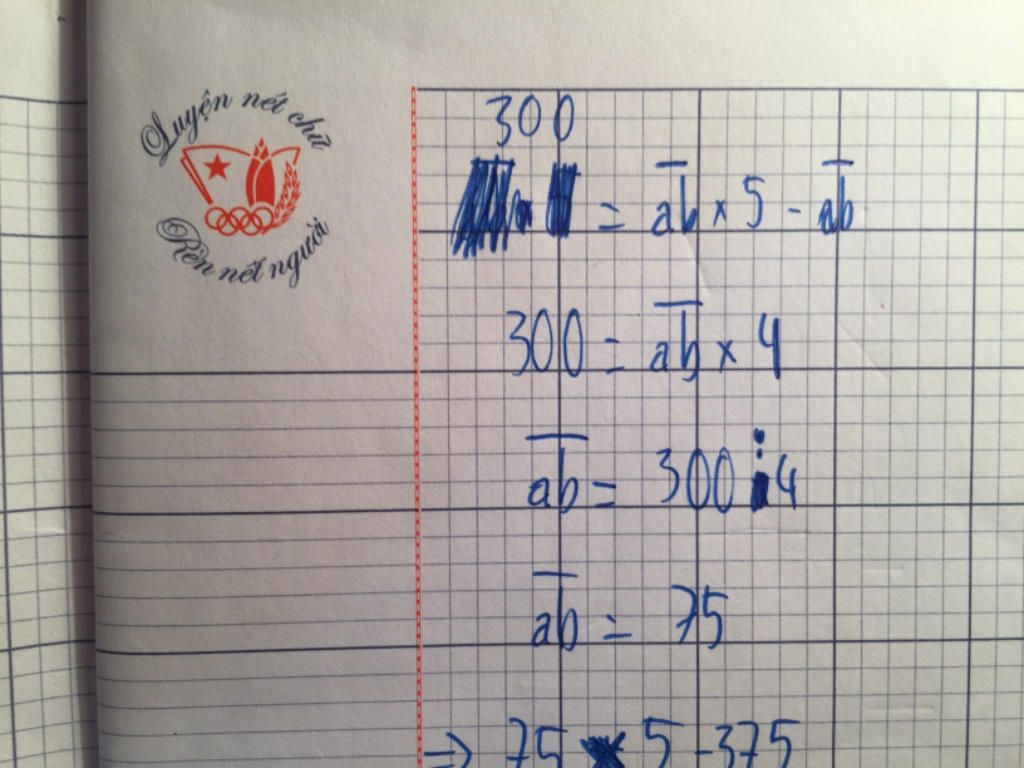 Luyện nét chữ
Rèn nết người
300
= ab × 5 - ab
300 = ab × 4
ab = 300 : 4
ab = 75
→ 75 × 5 - 375